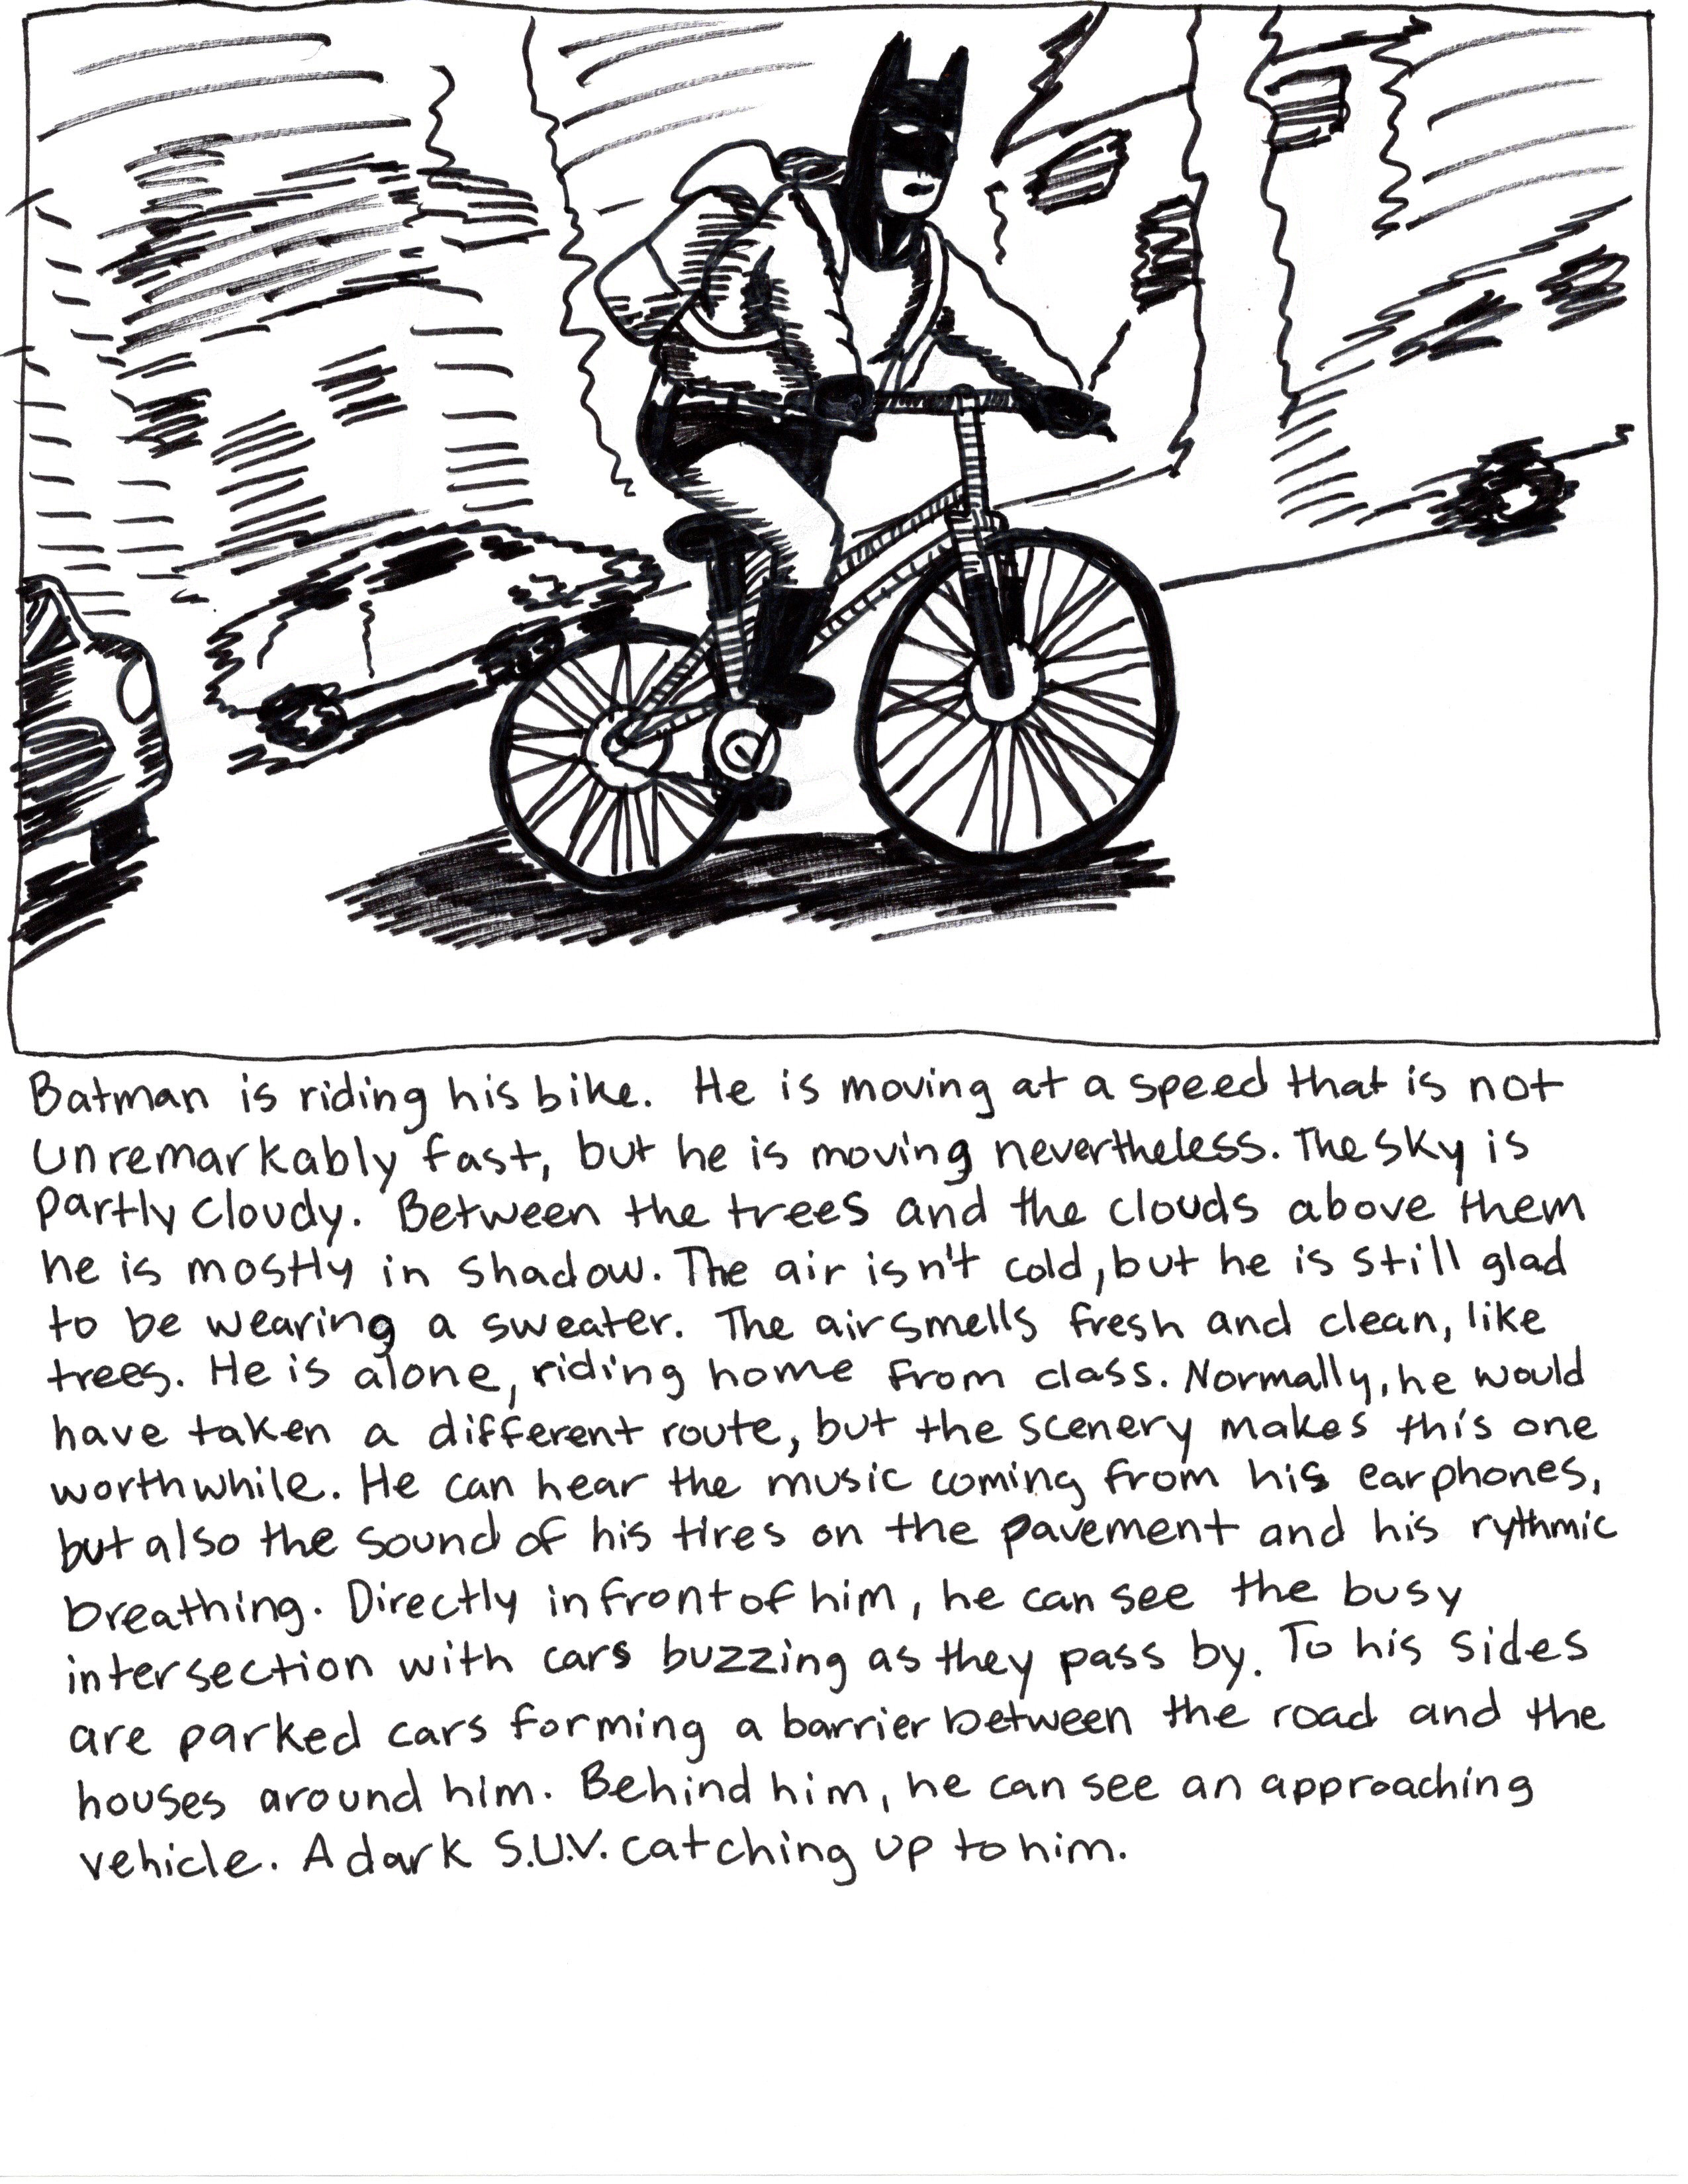 Batman is riding his bike. He is moving at a speed that is not
unremarkably fast, but he is moving nevertheless. The sky is
partly cloudy. Between the trees and the clouds above them
he is mostly in shadow. The air isn't cold, but he is still glad
to be wearing a sweater. The air smells fresh and clean, like
trees. He is alone, riding home from class. Normally, he would
have taken a different route, but the scenery makes this one
worthwhile. He can hear the music coming from his earphones,
but also the sound of his tires on the pavement and his rythmic
breathing. Directly in front of him, he can see the busy
intersection with cars buzzing as they pass by. To his sides
are parked cars forming a barrier between the road and the
houses around him. Behind him, he can see an approaching
vehicle. A dark S.U.V. catching up to him.